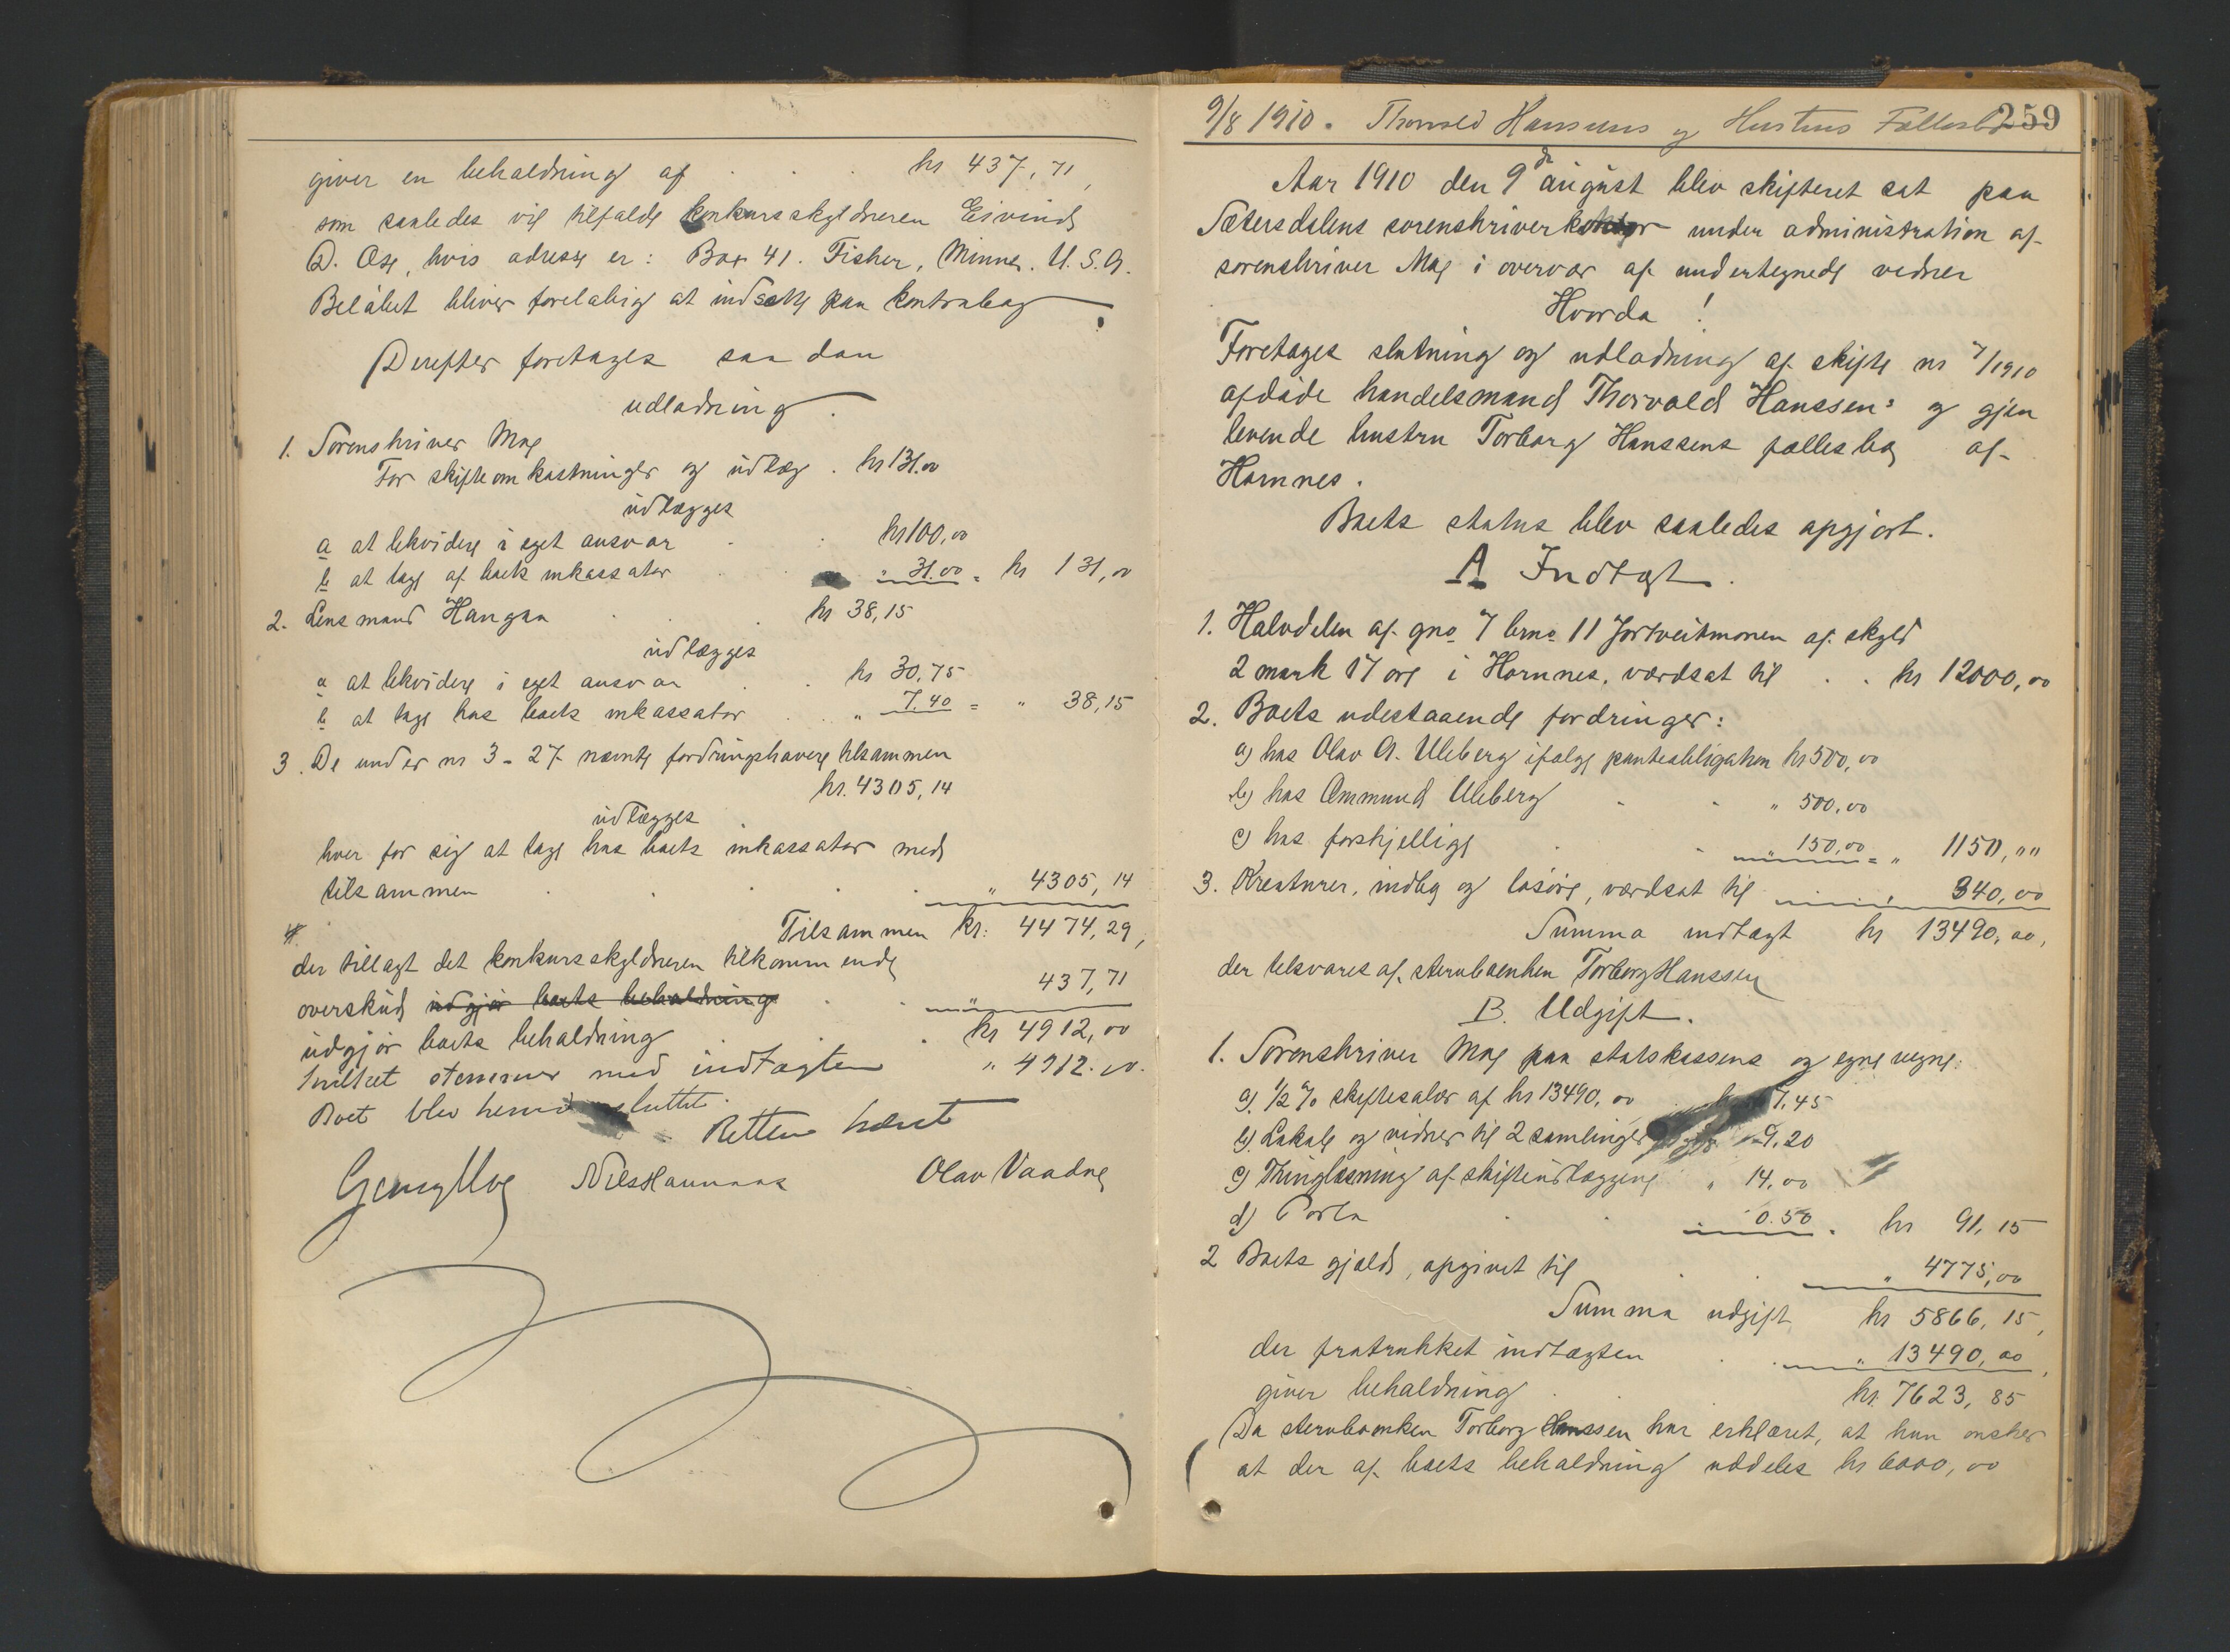 giver en behaldning af kr 437,71,
som saaledes vil tilfalde konkursskyldneren Eivind
D. Ose, hvis adresse er: Box 41. Fisher, Minne. U.S.A.
Beløbet bliver foreløbig at indsætte paa kontrabog
Derefter foretages saadan
udlodning.
1. Sorenskriver Moe
For skifteomkostninger og udlæg. kr 131.00
udlægges
a at likvidere i eget ansvar kr 100,00
b at tage af boets inkassator " 31.00 = kr 131,00
2. Lensmand Haugaa kr 38,15
udlægges
a at likvidere i eget ansvar kr 30,75
b at tage hos boets inkassator " 7.40 = " 38,15
3. De under nr 3-27 nævnte fordringshavere tilsammen
kr. 4305,14
udlægges
hver for sig at tage hos boets inkassator med
tilsammen " 4305,14
Tilsammen kr: 4474,29,
der tillagt det konkursskyldneren tilkommende
overskud udgjør boets behaldning " 437,71
udgjør boets behaldning kr 4912,00
hvilket stemmer med indtægten " 4912.00.
Boet blev hermed sluttet.
Retten hævet
Georg Moe Nils Haunaas Olav Vaadne
9/8 1910. Thorvald Hanssens og Hustrus Fællesbo 259
Aar 1910 den 9de august blev skifteret sat paa
Sætersdalens sorenskriverkontor under administration af
sorenskriver Moe i overvær af undertegnede vidner
Hvorda!
Foretages slutning og udlodning af skifte nr 7/1910
afdøde handelsmand Thorvald Hanssens og gjen
levende hustru Torborg Hanssens fællesbo af
Hornnes.
Boets status blev saaledes opgjort.
A Indtægt.
1. Halvdelen af gno 7 brno 11 Jortveitmonen af skyld
2 mark 17 øre i Hornnes, værdsat til kr 12000,00
2. Boets udestaaende fordringer:
a) hos Olav A. Uleberg ifølge panteobligation kr 500,00
b) hos Ommund Uleberg " 500,00
c) hos forskjellige " 150,00 = " 1150,""
3. Kreaturer, indbo og løsøre, værdsat til " 340,00
Summa indtægt kr 13490,00,
der tilsvares af sterboenken Torborg Hanssen
B. Udgift.
1. Sorenskriver Moe paa statskassens og egne vegne:
a). 1/2 % skiftesalær af kr 13490,00 7.45
b). Lokale og vidner til 2 samlinger 9.20
c) Thinglæsning af skifteudlæggene " 14.00
d) Porto " 0.50 = kr 91,15
2 Boets gjæld, opgivet til " 4775,00
Summa udgift kr 5866,15,
der fratrukket indtægten " 13490,00,
giver behaldning kr. 7623,85
Da sterboenken Torborg Hanssen har erklæret, at hun ønsker
at der af boets behaldning uddeles kr 6000,00